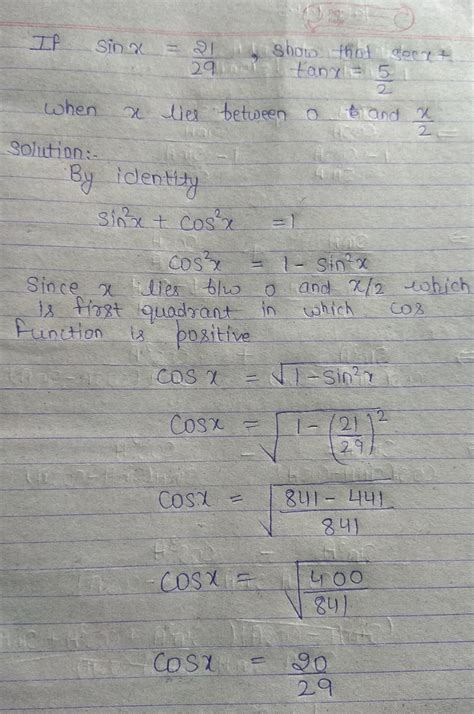 If sinx = 21/29, show that secx +
tanx = 5/2
when x lies between 0 & and x/2
Solution:-
By identity
sin²x + cos²x = 1
cos²x = 1 - sin²x
Since x lies b/w 0 and x/2 which
is first quadrant in which cos
function is positive
cos x = √1-sin²x
cosx = √1-(21/29)²
cosx = √841-441/841
cosx = √400/841
cosx = 20/29